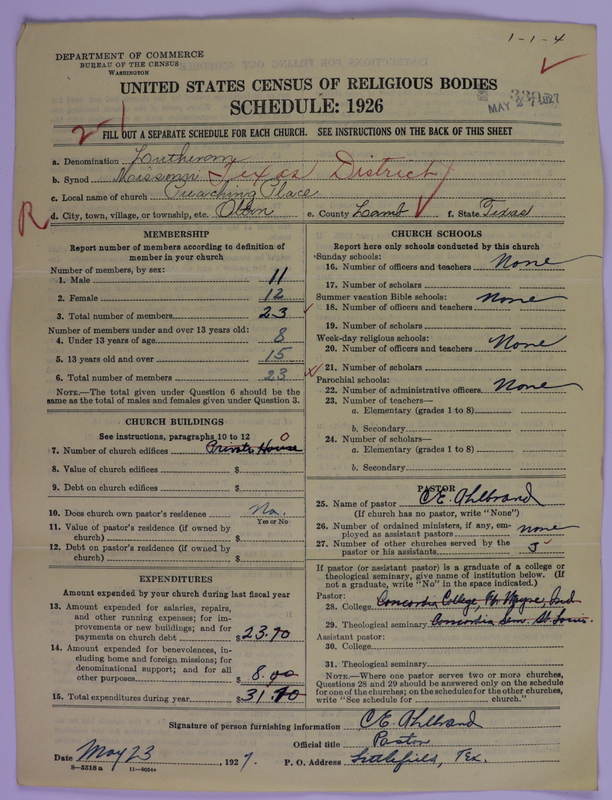 1-1-4
DEPARTMENT OF COMMERCE
BUREAU OF THE CENSUS
WASHINGTON
UNITED STATES CENSUS OF RELIGIOUS BODIES
SCHEDULE: 1926
MAY 27 1927
2-1
FILL OUT A SEPARATE SCHEDULE FOR EACH CHURCH. SEE INSTRUCTIONS ON THE BACK OF THIS SHEET
a. Denomination Lutheran
b. Synod Missouri Texas District
c. Local name of church Preaching Place
R
d. City, town, village, or township, etc. Olton e. County Lamb f. State Texas
MEMBERSHIP
Report number of members according to definition of
member in your church
Number of members, by sex:
1. Male 11
2. Female 12
3. Total number of members 23
Number of members under and over 13 years old:
4. Under 13 years of age 8
5. 13 years old and over 15
6. Total number of members 23
NOTE.—The total given under Question 6 should be
the same as the total of males and females given under Question 3.
CHURCH BUILDINGS
See instructions, paragraphs 10 to 12
7. Number of church edifices Private House 0
8. Value of church edifices $
9. Debt on church edifices $
10. Does church own pastor's residence No.
Yes or No
11. Value of pastor's residence (if owned by
church) $
12. Debt on pastor's residence (if owned by
church) $
EXPENDITURES
Amount expended by your church during last fiscal year
13. Amount expended for salaries, repairs,
and other running expenses; for im-
provements or new buildings; and for
payments on church debt $ 23.70
14. Amount expended for benevolences, in-
cluding home and foreign missions; for
denominational support; and for all
other purposes $ 8.00
15. Total expenditures during year $ 31.70
CHURCH SCHOOLS
Report here only schools conducted by this church
Sunday schools:
16. Number of officers and teachers None
17. Number of scholars
Summer vacation Bible schools:
18. Number of officers and teachers None
19. Number of scholars
Week-day religious schools:
20. Number of officers and teachers None
21. Number of scholars
Parochial schools:
22. Number of administrative officers None
23. Number of teachers—
a. Elementary (grades 1 to 8)
b. Secondary
24. Number of scholars—
a. Elementary (grades 1 to 8)
b. Secondary
PASTOR
25. Name of pastor C.E. Ahlbrand
(If church has no pastor, write "None")
26. Number of ordained ministers, if any, em-
ployed as assistant pastors none
27. Number of other churches served by the
pastor or his assistants 5
If pastor (or assistant pastor) is a graduate of a college or
theological seminary, give name of institution below. (If
not a graduate, write "No" in the space indicated.)
Pastor:
28. College Concordia College, Ft. Wayne, Ind
29. Theological seminary Concordia Sem. St. Louis.
Assistant pastor:
30. College
31. Theological seminary
NOTE.—Where one pastor serves two or more churches,
Questions 28 and 29 should be answered only on the schedule
for one of the churches; on the schedules for the other churches,
write "See schedule for church."
Signature of person furnishing information C.E. Ahlbrand
Official title Pastor
Date May 23, 1927. P. O. Address Littlefield, Tex.
8—5518a 11—9034